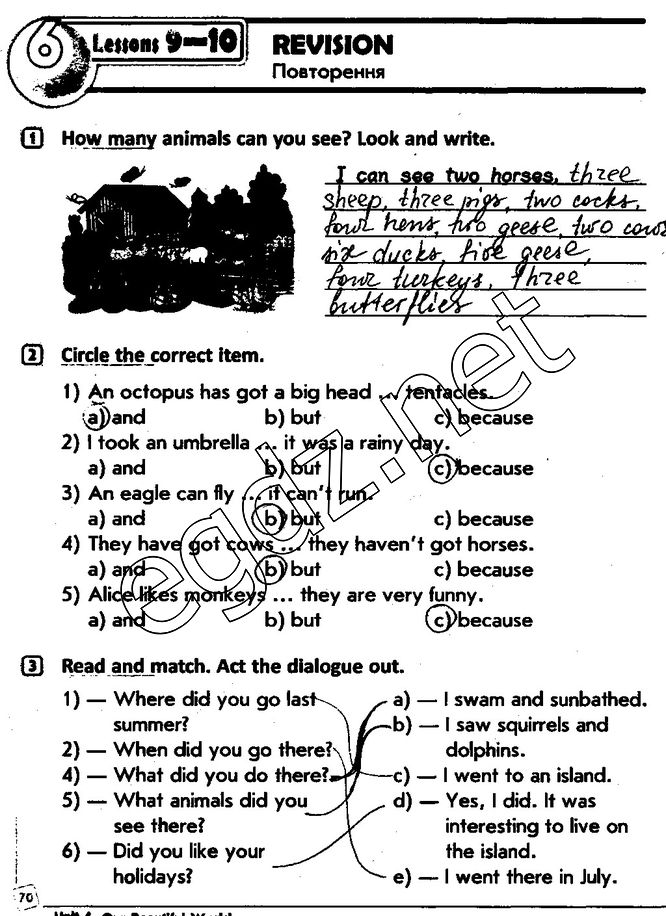 6 Lessons 9—10 REVISION
Повторення
1 How many animals can you see? Look and write.
I can see two horses, three
sheep, three pigs, two cocks,
four hens, two geese, two cows
six ducks, five geese,
four turkeys, three
butterflies
2 Circle the correct item.
1) An octopus has got a big head ... tentacles.
a) and b) but c) because
2) I took an umbrella ... it was a rainy day.
a) and b) but c) because
3) An eagle can fly ... it can't run.
a) and b) but c) because
4) They have got cows ... they haven't got horses.
a) and b) but c) because
5) Alice likes monkeys ... they are very funny.
a) and b) but c) because
egdz.net
3 Read and match. Act the dialogue out.
1) — Where did you go last
summer?
2) — When did you go there?
4) — What did you do there?
5) — What animals did you
see there?
6) — Did you like your
holidays?
a) — I swam and sunbathed.
b) — I saw squirrels and
dolphins.
c) — I went to an island.
d) — Yes, I did. It was
interesting to live on
the island.
e) — I went there in July.
70